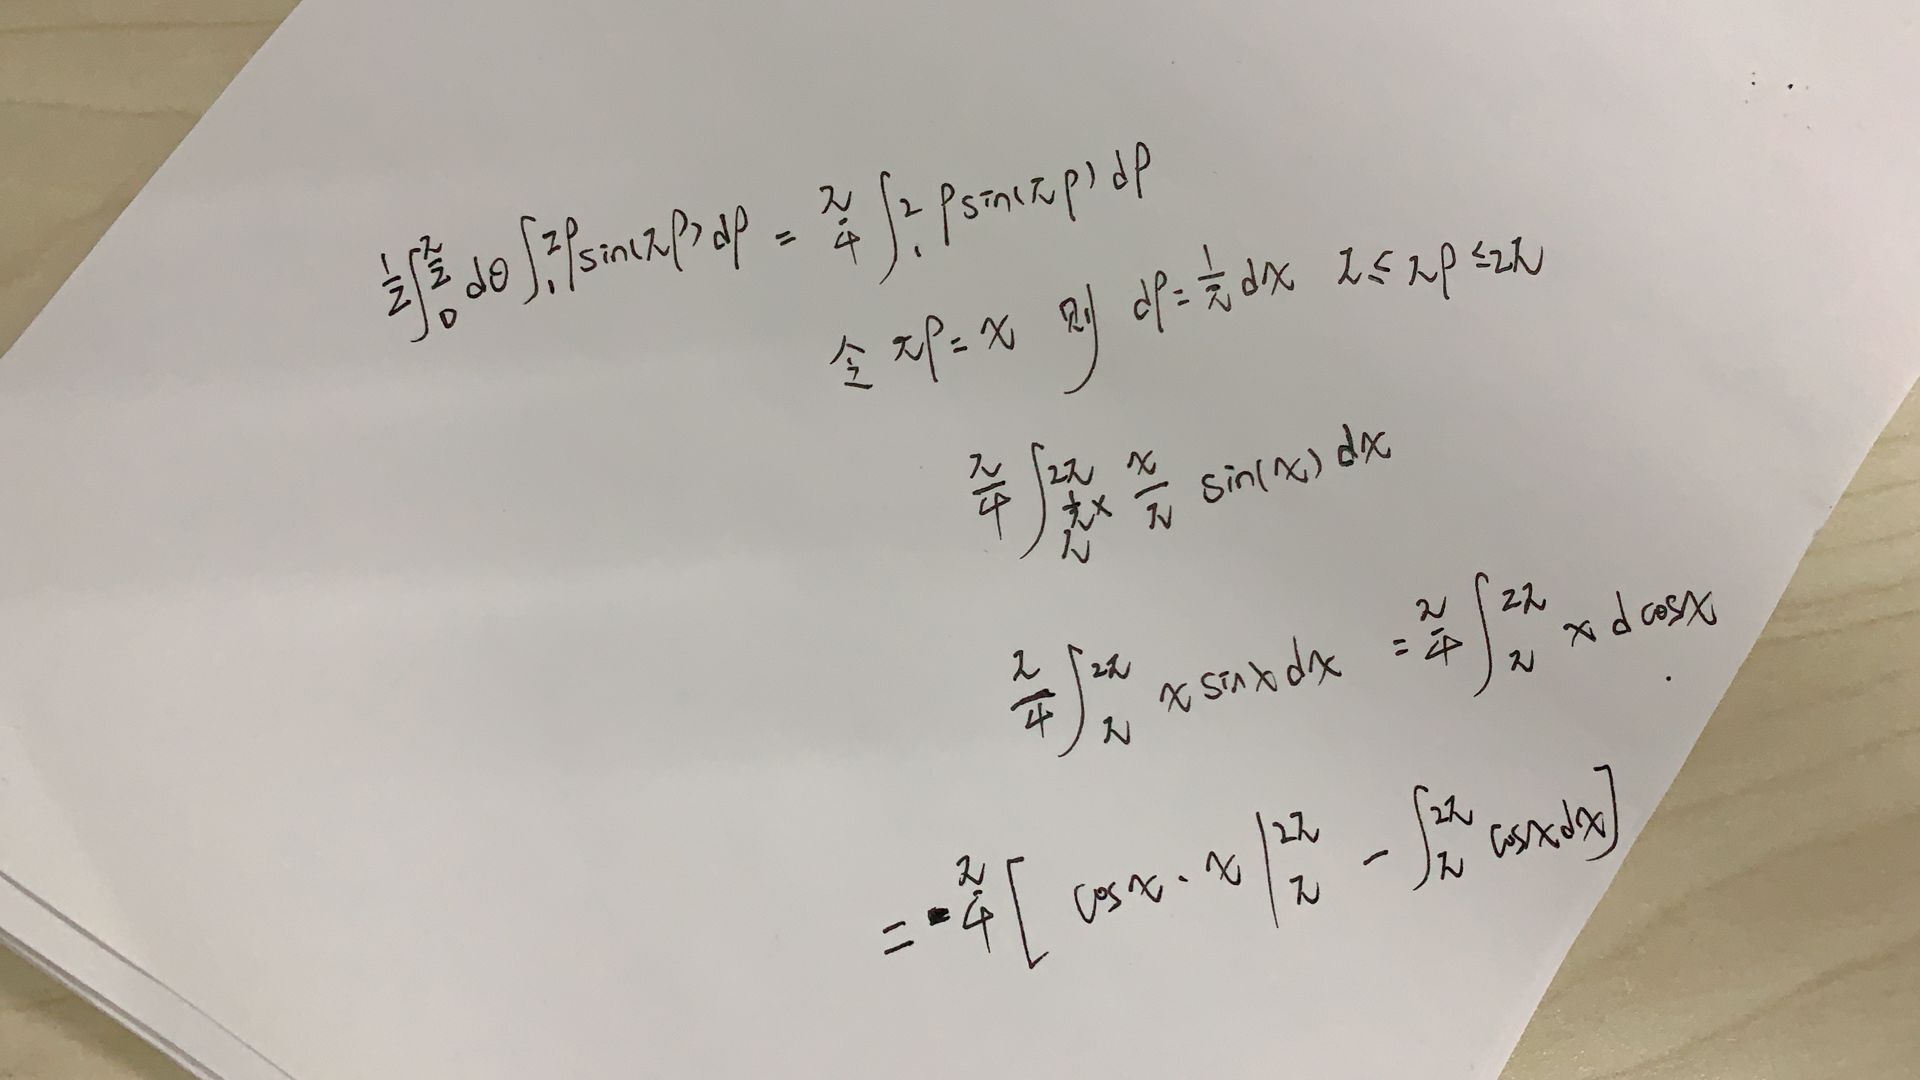 ½∫₀^(π/2) dθ ∫₁² ρ sin(πρ) dρ = π/4 ∫₁² ρ sin(πρ) dρ
令 πρ = x 则 dρ = 1/π dx π ≤ πρ ≤ 2π
π/4 ∫_π^(2π) x/π sin(x) dx
π/4 ∫_π^(2π) x sinx dx = π/4 ∫_π^(2π) x d cosx
= -π/4 [ cosx · x |_π^(2π) - ∫_π^(2π) cosx dx ]